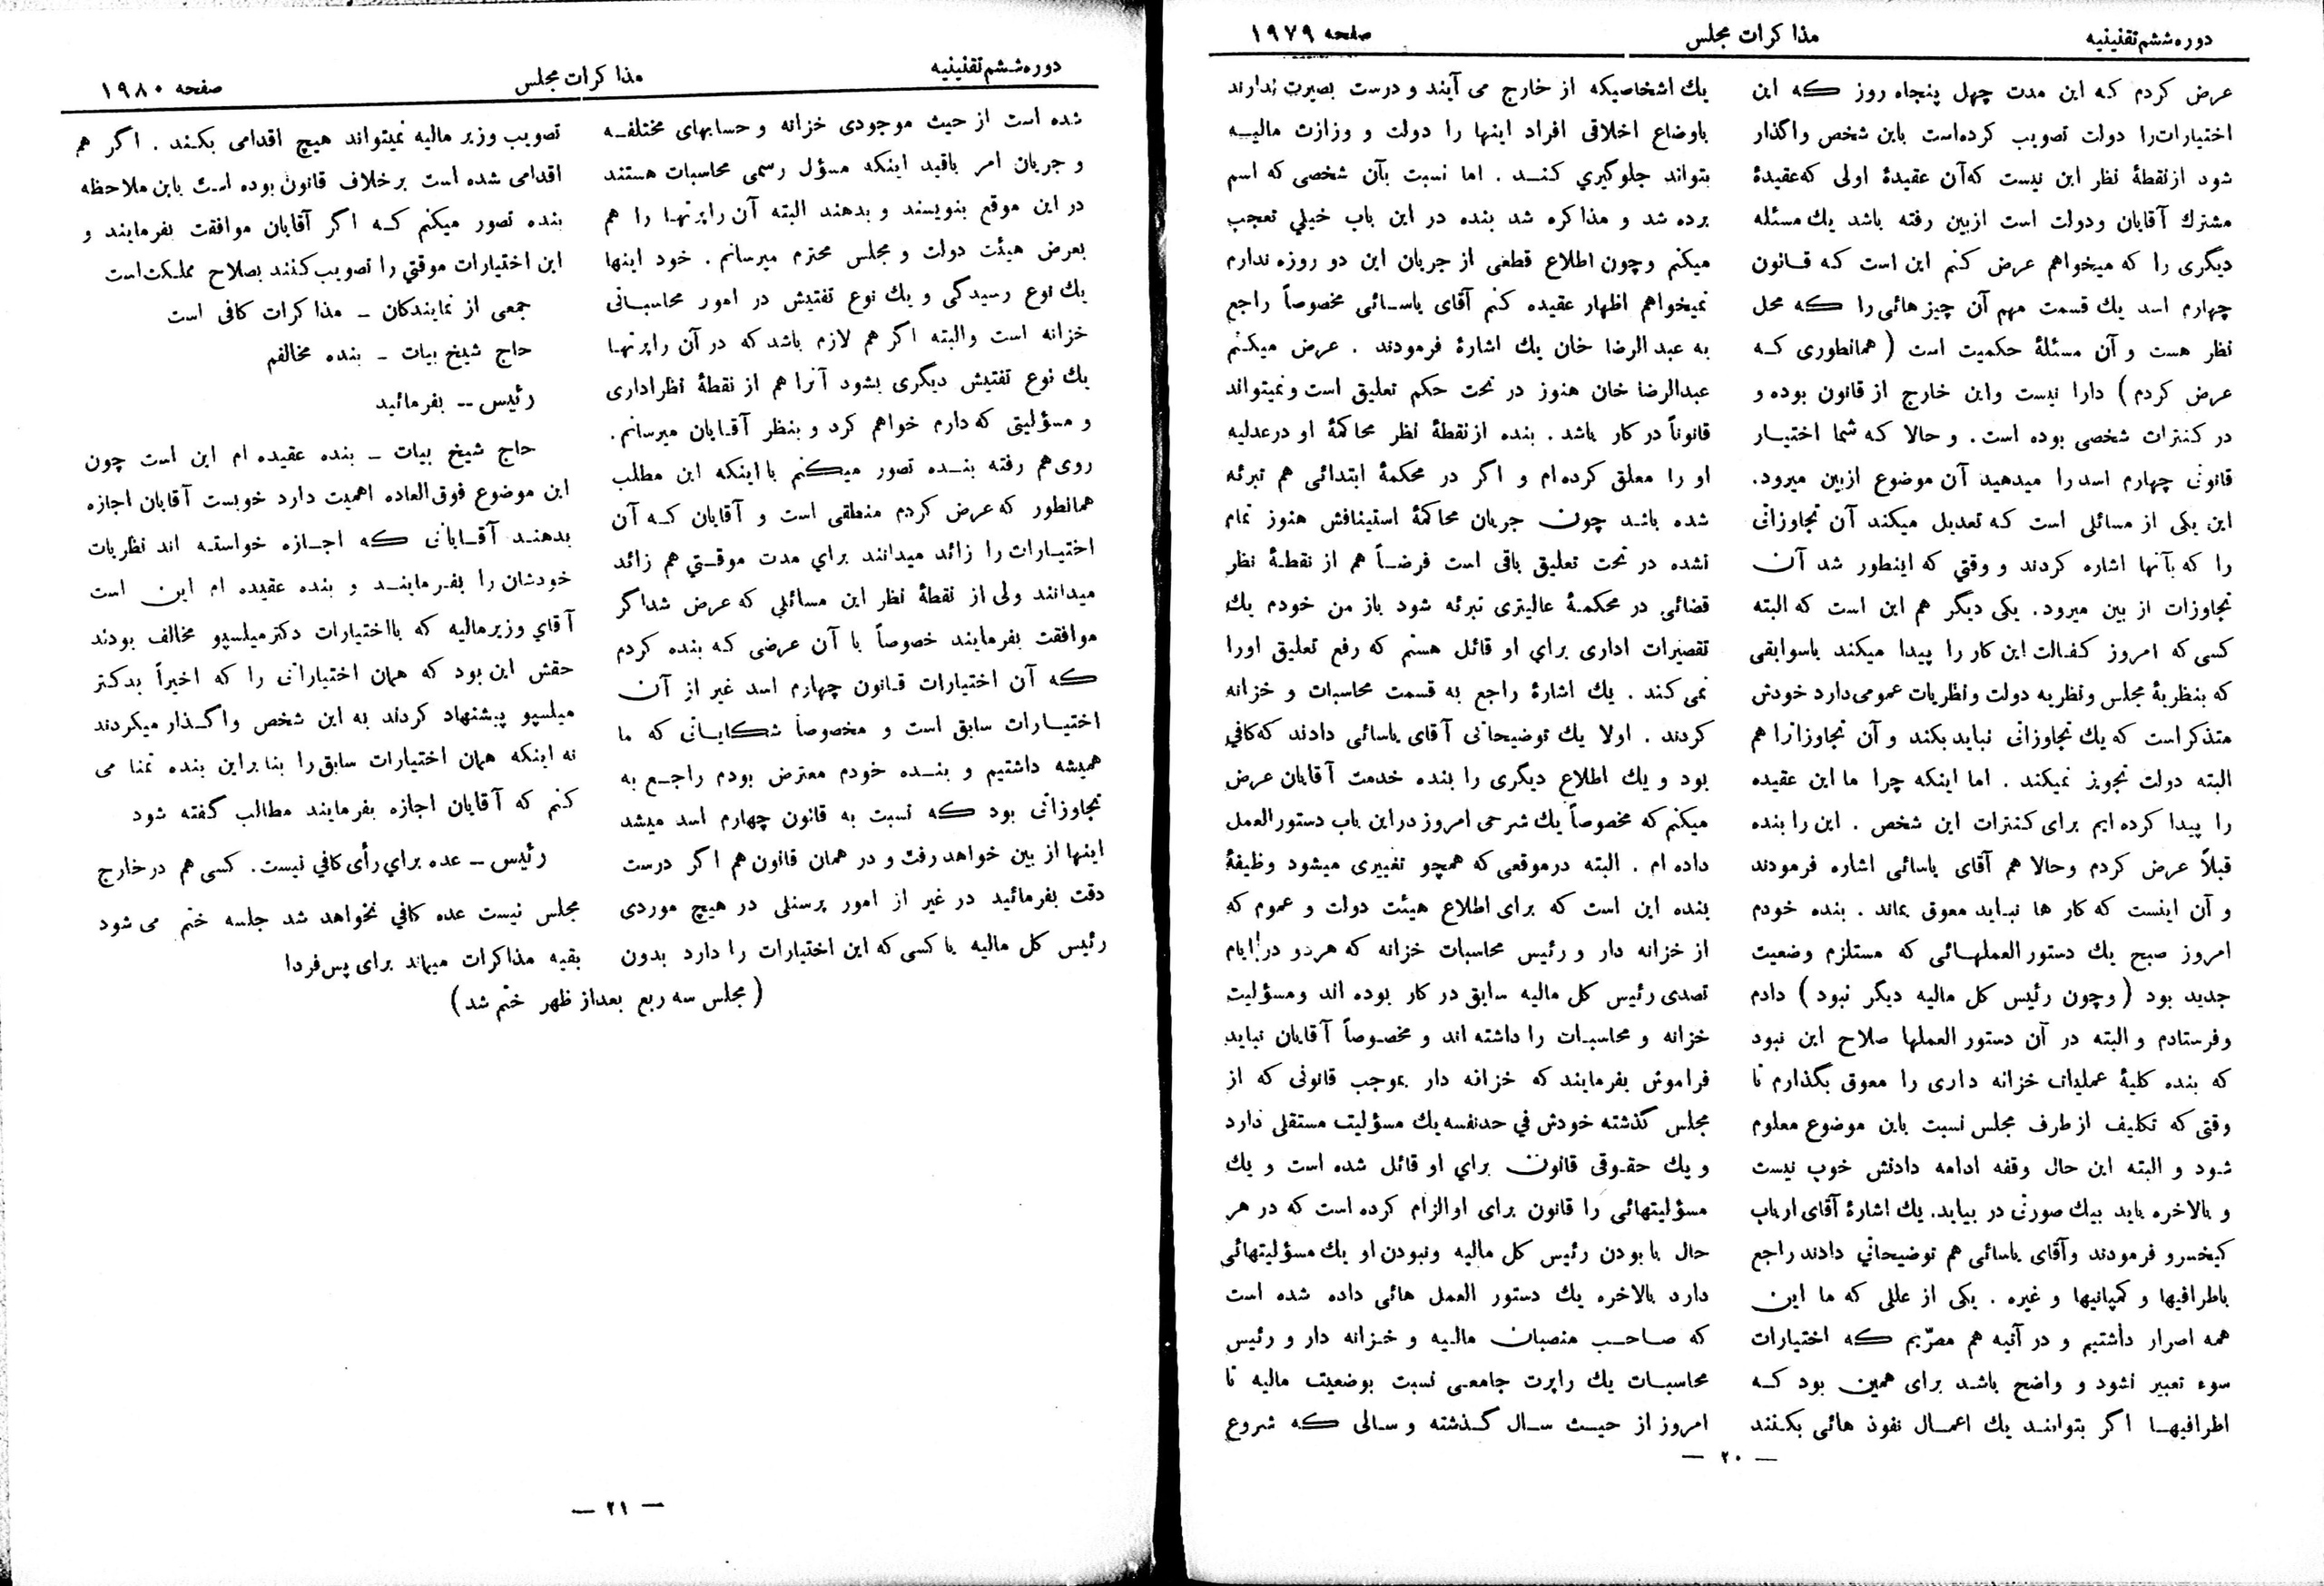 دوره ششم تقنینیه
مذاکرات مجلس
صفحه ۱۹۷۹
عرض کردم که این مدت چهل پنجاه روز که این
اختیارات را دولت تصویب کرده است باین شخص واگذار
شود از نقطهٔ نظر این نیست که آن عقیدهٔ اولی که عقیدهٔ
مشترك آقایان و دولت است ازبین رفته باشد یك مسئله
دیگری را که میخواهم عرض کنم این است که قانون
چهارم اسد یك قسمت مهم آن چیز هائی را که محل
نظر هست و آن مسئلهٔ حکمیت است ( همانطوری که
عرض کردم ) دارا نیست واین خارج از قانون بوده و
در کنترات شخصی بوده است . و حالا که شما اختیار
قانونی چهارم اسد را میدهید آن موضوع ازبین میرود.
این یکی از مسائلی است که تعدیل میکند آن تجاوزاتی
را که بآنها اشاره کردند و وقتي که اینطور شد آن
تجاوزات از بین میرود. یکی دیگر هم این است که البته
کسی که امروز کفالت این کار را پیدا میکند باسوابقی
که بنظریهٔ مجلس ونظریه دولت ونظریات عمومی دارد خودش
متذکر است که یك تجاوزاتی نباید بکند و آن تجاوزاترا هم
البته دولت تجویز نمیکند . اما اینکه چرا ما این عقیده
را پیدا کرده ایم برای کنترات این شخص . این را بنده
قبلاً عرض کردم وحالا هم آقای یاسائی اشاره فرمودند
و آن اینست که کار ها نباید معوق بماند . بنده خودم
امروز صبح یك دستور العملهائی که مستلزم وضعیت
جدید بود ( وچون رئیس کل مالیه دیگر نبود ) دادم
وفرستادم و البته در آن دستور العملها صلاح این نبود
که بنده کلیهٔ عملیات خزانه داری را معوق بگذارم تا
وقتی که تکلیف از طرف مجلس نسبت باین موضوع معلوم
شود و البته این حال وقفه ادامه دادنش خوب نیست
و بالاخره باید بیك صورتی در بیاید. یك اشارهٔ آقای ارباب
کیخسرو فرمودند وآقای یاسائی هم توضیحاتي دادند راجع
باطرافیها و کمپانیها و غیره . یکی از عللی که ما این
همه اصرار داشتیم و در آتیه هم مصرّیم که اختیارات
سوء تعبیر نشود و واضح باشد برای همین بود که
اطرافیها اگر بتوانند یك اعمال نفوذ هائی بکنند
یك اشخاصیکه از خارج می آیند و درست بصیرت ندارند
باوضاع اخلاقی افراد اینها را دولت و وزارت مالیه
بتواند جلوگیري کند . اما نسبت بآن شخصی که اسم
برده شد و مذاکره شد بنده در این باب خیلي تعجب
میکنم وچون اطلاع قطعی از جریان این دو روزه ندارم
نمیخواهم اظهار عقیده کنم آقای یاسائی مخصوصاً راجع
به عبد الرضا خان یك اشارهٔ فرمودند . عرض میکنم
عبدالرضا خان هنوز در تحت حکم تعلیق است ونمیتواند
قانوناً در کار باشد . بنده از نقطهٔ نظر محاکمهٔ او در عدلیه
او را معلق کرده ام و اگر در محکمهٔ ابتدائی هم تبرئه
شده باشد چون جریان محاکمهٔ استینافش هنوز تمام
نشده در تحت تعلیق باقی است فرضاً هم از نقطهٔ نظر
قضائي در محکمهٔ عالیتری تبرئه شود باز من خودم یك
تقصیرات اداری براي او قائل هستم که رفع تعلیق اورا
نمی کند . یك اشارهٔ راجع به قسمت محاسبات و خزانه
کردند . اولا یك توضیحاتی آقای یاسائی دادند که کافي
بود و یك اطلاع دیگری را بنده خدمت آقایان عرض
میکنم که مخصوصاً یك شرحی امروز دراین باب دستور العمل
داده ام . البته درموقعی که همچو تغییری میشود وظیفهٔ
بنده این است که برای اطلاع هیئت دولت و عموم که
از خزانه دار و رئیس محاسبات خزانه که هردو در ایام
تصدی رئیس کل مالیه سابق در کار بوده اند ومسؤلیت
خزانه و محاسبات را داشته اند و مخصوصاً آقایان نباید
فراموش بفرمایند که خزانه دار بموجب قانونی که از
مجلس گذشته خودش في حدنفسه یك مسؤلیت مستقلی دارد
و یك حقوقی قانون براي او قائل شده است و یك
مسؤلیتهائی را قانون برای او الزام کرده است که در هر
حال با بودن رئیس کل مالیه ونبودن او یك مسؤلیتهائي
دارد بالاخره یك دستور العمل هائی داده شده است
که صاحب منصبان مالیه و خزانه دار و رئیس
محاسبات یك راپرت جامعی نسبت بوضعیت مالیه تا
امروز از حیث سال گذشته و سالی که شروع
— ۲۰ —
دوره ششم تقنینیه
مذاکرات مجلس
صفحه ۱۹۸۰
شده است از حیث موجودی خزانه و حسابهای مختلفه
و جریان امر باقید اینکه مسؤل رسمی محاسبات هستند
در این موقع بنویسند و بدهند البته آن راپرتها را هم
بعرض هیئت دولت و مجلس محترم میرسانم . خود اینها
یك نوع رسیدگی و یك نوع تفتیش در امور محاسباتی
خزانه است والبته اگر هم لازم باشد که در آن راپرتها
یك نوع تفتیش دیگری بشود آنرا هم از نقطهٔ نظر اداری
و مسؤلیتی که دارم خواهم کرد و بنظر آقایان میرسانم.
روی هم رفته بنده تصور میکنم با اینکه این مطلب
همانطور که عرض کردم منطقی است و آقایان که آن
اختیارات را زائد میدانند براي مدت موقتي هم زائد
میدانند ولی از نقطهٔ نظر این مسائلي که عرض شد اگر
موافقت بفرمایند خصوصاً با آن عرضی که بنده کردم
که آن اختیارات قانون چهارم اسد غیر از آن
اختیارات سابق است و مخصوصاً شکایاتی که ما
همیشه داشتیم و بنده خودم معترض بودم راجع به
تجاوزاتی بود که نسبت به قانون چهارم اسد میشد
اینها از بین خواهد رفت و در همان قانون هم اگر درست
دقت بفرمائید در غیر از امور پرسنلی در هیچ موردی
رئیس کل مالیه یا کسی که این اختیارات را دارد بدون
تصویب وزیر مالیه نمیتواند هیچ اقدامی بکند . اگر هم
اقدامی شده است برخلاف قانون بوده است باین ملاحظه
بنده تصور میکنم که اگر آقایان موافقت بفرمایند و
این اختیارات موقتي را تصویب کنند بصلاح مملکت است
جمعی از نمایندکان ــ مذاکرات کافی است
حاج شیخ بیات ــ بنده مخالفم
رئیس ــ بفرمائید
حاج شیخ بیات ــ بنده عقیده ام این است چون
این موضوع فوق العاده اهمیت دارد خوبست آقایان اجازه
بدهند آقایانی که اجازه خواسته اند نظریات
خودشان را بفرمایند و بنده عقیده ام این است
آقاي وزیر مالیه که بااختیارات دکتر میلسپو مخالف بودند
حقش این بود که همان اختیاراتی را که اخیراً بدکتر
میلسپو پیشنهاد کردند به این شخص واگذار میکردند
نه اینکه همان اختیارات سابق را بنا براین بنده تمنا می
کنم که آقایان اجازه بفرمایند مطالب گفته شود
رئیس ــ عده براي رأی کافي نیست . کسی هم در خارج
مجلس نیست عده کافي نخواهد شد جلسه ختم می شود
بقیه مذاکرات میماند برای پس فردا
( مجلس سه ربع بعداز ظهر ختم شد )
— ۲۱ —